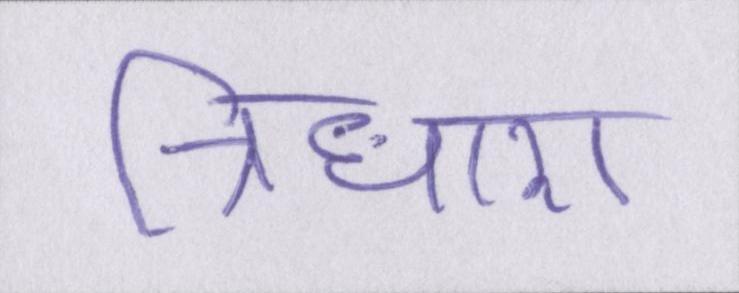 त्रिधारा